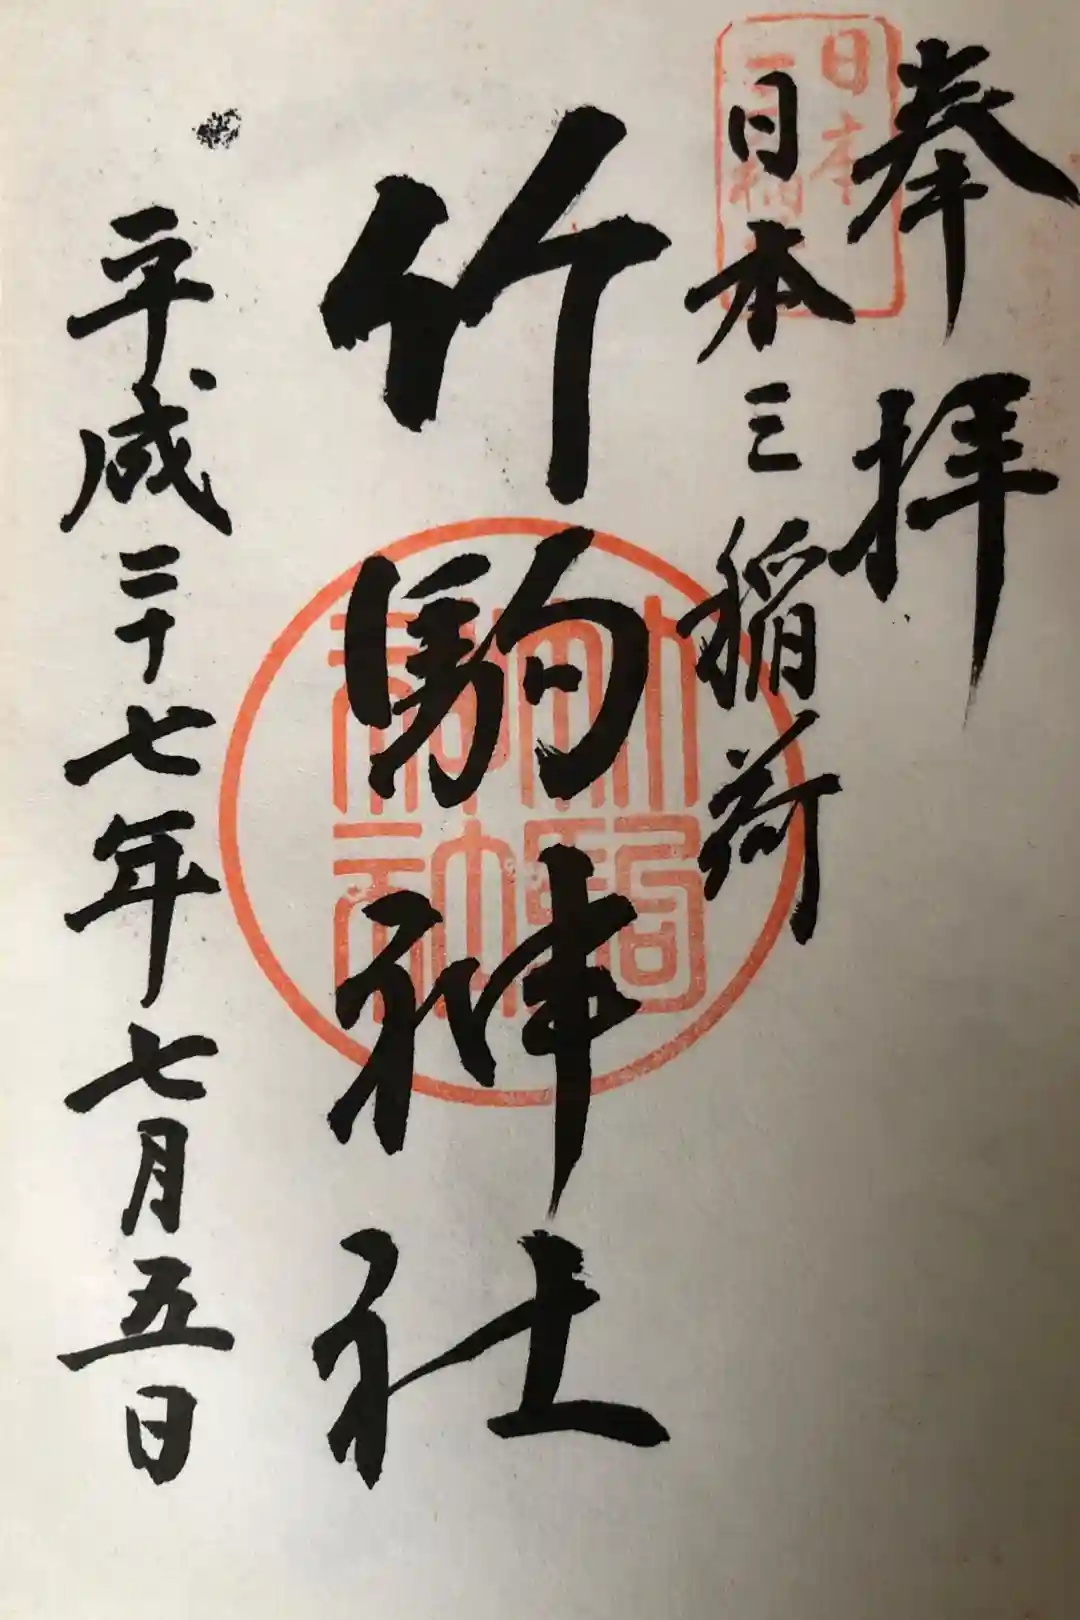 奉拝
日本三稲荷
竹駒神社
平成二十七年七月五日
日本
竹駒神社